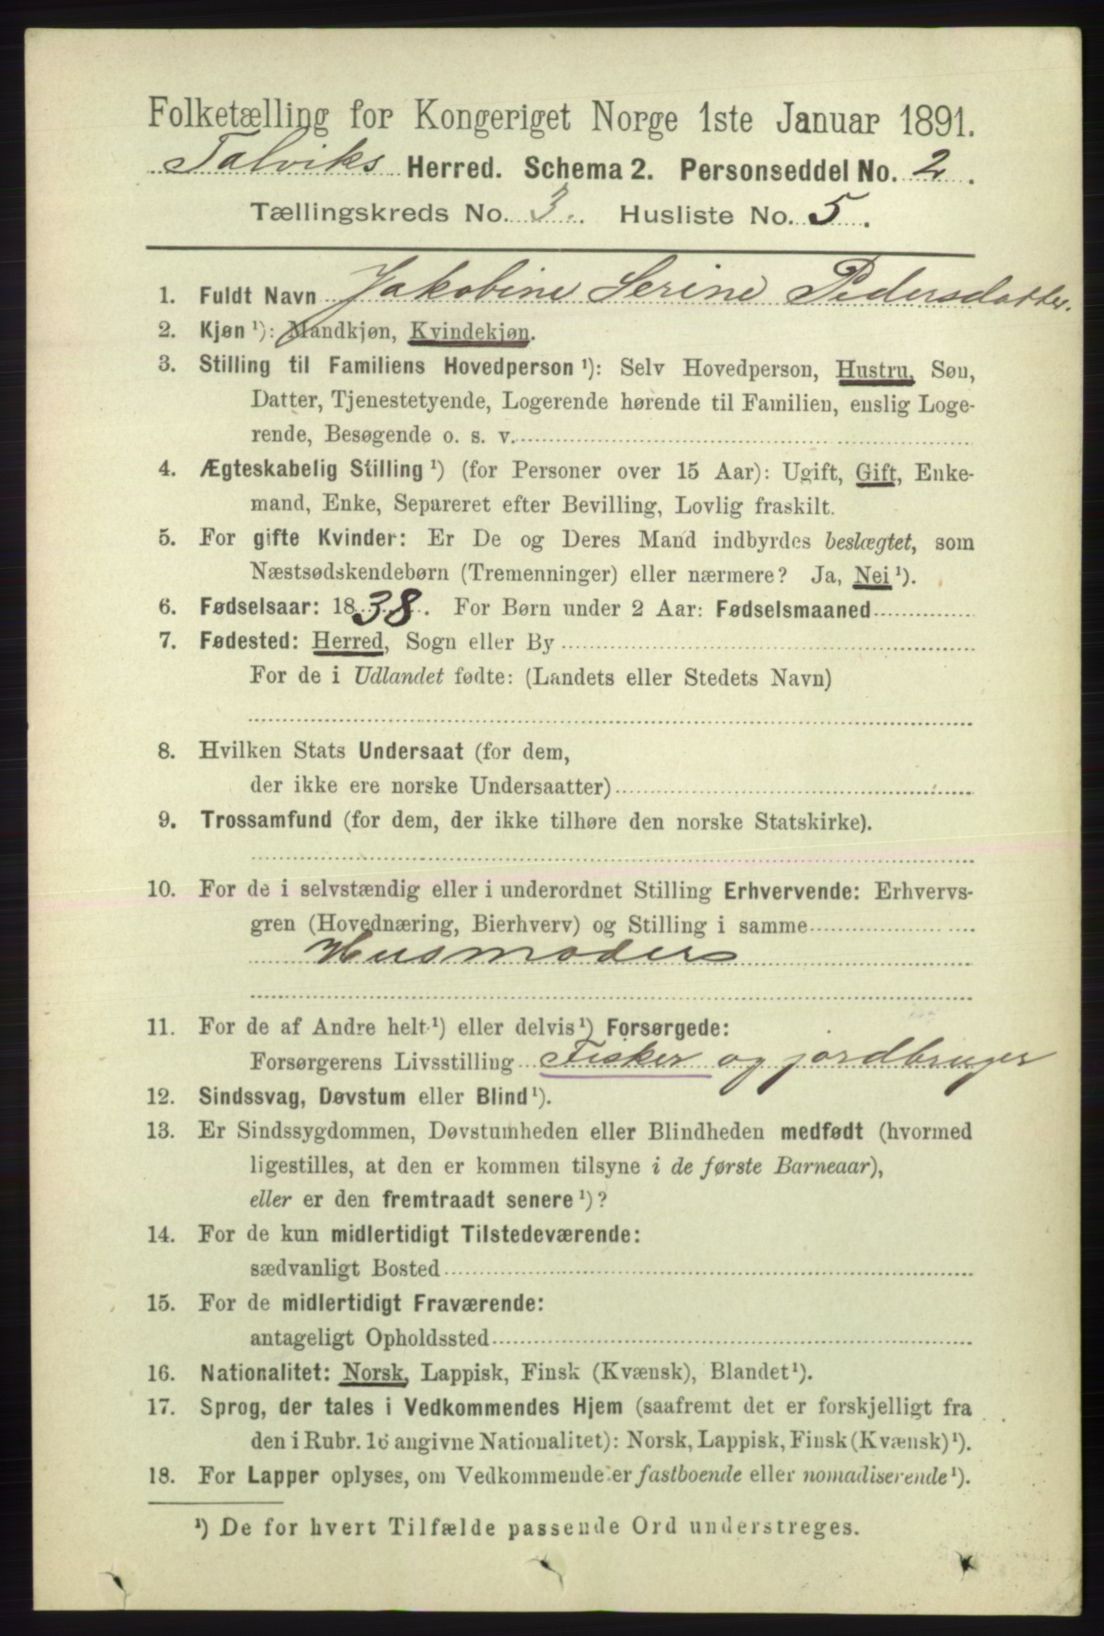 Folketælling for Kongeriget Norge 1ste Januar 1891.
Talviks Herred. Schema 2. Personseddel No. 2.
Tællingskreds No. 3. Husliste No. 5.
1. Fuldt Navn Jakobine Serine Pedersdatter.
2. Kjøn ¹): Mandkjøn, Kvindekjøn.
3. Stilling til Familiens Hovedperson ¹): Selv Hovedperson, Hustru, Søn,
Datter, Tjenestetyende, Logerende hørende til Familien, enslig Loge-
rende, Besøgende o. s. v.
4. Ægteskabelig Stilling ¹) (for Personer over 15 Aar): Ugift, Gift, Enke-
mand, Enke, Separeret efter Bevilling, Lovlig fraskilt.
5. For gifte Kvinder: Er De og Deres Mand indbyrdes beslægtet, som
Næstsødskendebørn (Tremenninger) eller nærmere? Ja, Nei ¹).
6. Fødselsaar: 1838. For Børn under 2 Aar: Fødselsmaaned
7. Fødested: Herred, Sogn eller By
For de i Udlandet fødte: (Landets eller Stedets Navn)
8. Hvilken Stats Undersaat (for dem,
der ikke ere norske Undersaatter)
9. Trossamfund (for dem, der ikke tilhøre den norske Statskirke).
10. For de i selvstændig eller i underordnet Stilling Erhvervende: Erhvervs-
gren (Hovednæring, Bierhverv) og Stilling i samme
Husmoders
11. For de af Andre helt ¹) eller delvis ¹) Forsørgede:
Forsørgerens Livsstilling Fisker og jordbruger
12. Sindssvag, Døvstum eller Blind ¹).
13. Er Sindssygdommen, Døvstumheden eller Blindheden medfødt (hvormed
ligestilles, at den er kommen tilsyne i de første Barneaar),
eller er den fremtraadt senere ¹)?
14. For de kun midlertidigt Tilstedeværende:
sædvanligt Bosted
15. For de midlertidigt Fraværende:
antageligt Opholdssted
16. Nationalitet: Norsk, Lappisk, Finsk (Kvænsk), Blandet ¹).
17. Sprog, der tales i Vedkommendes Hjem (saafremt det er forskjelligt fra
den i Rubr. 16 angivne Nationalitet): Norsk, Lappisk, Finsk (Kvænsk) ¹).
18. For Lapper oplyses, om Vedkommende er fastboende eller nomadiserende ¹).
¹) De for hvert Tilfælde passende Ord understreges.